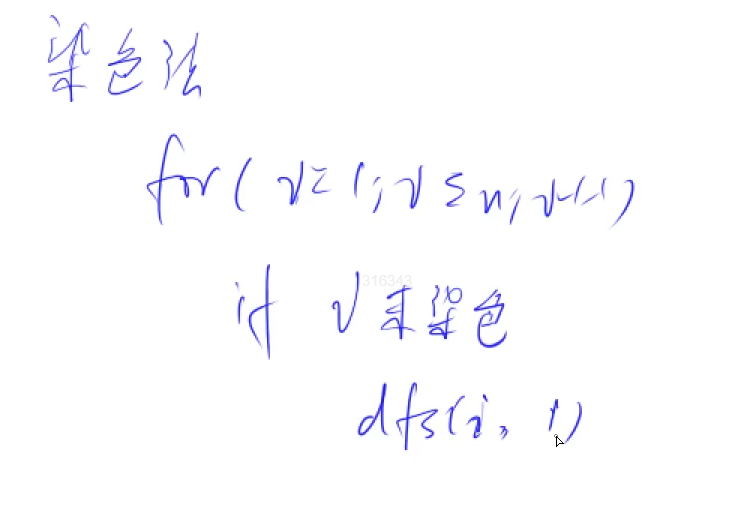 染色法
for( i=1; i≤n; i++)
if i未染色
dfs(i, 1)
316343